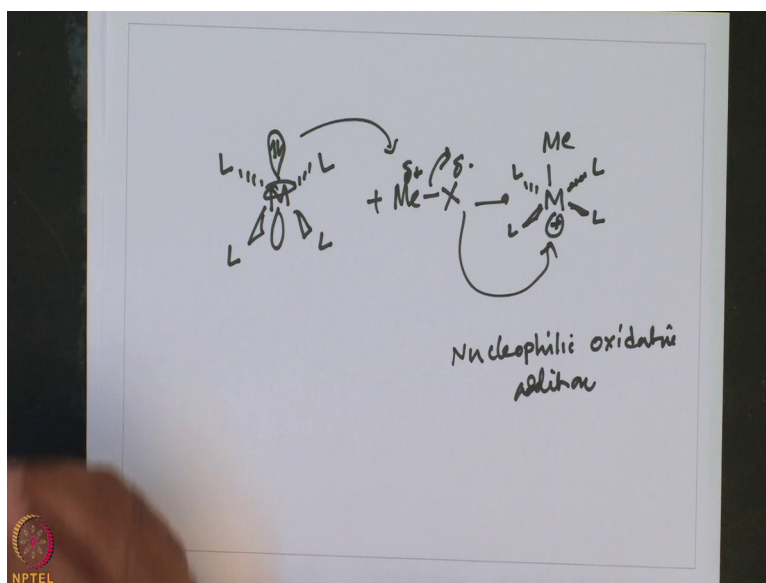 L L
M
L L
δ+ δ-
+ Me-X →
Me
L L
M
L L
+
Nucleophilic oxidative
addition
NPTEL